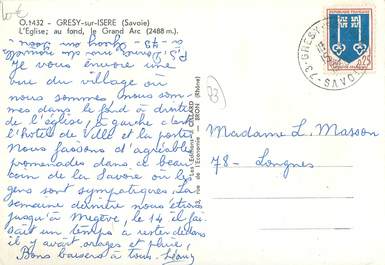 O.1432 - GRESY-sur-ISERE (Savoie)
L'Eglise; au fond, le Grand Arc (2488 m.).
Je vous envoie une
vue du village où
nous sommes, nous som-
mes dans le fond à droite
de l'église, à gauche dans
l'hôtel de Ville et la poste
Nous faisons d'agréables
promenades dans ce beau
coin de la Savoie où les
gens sont sympatiques. La
semaine dernière nous étions
jusqu'à Megève, le 14 il fai-
sait un temps à rester dedans
il y avait orages et pluie,
Bons baisers à tous
Les Editions J. CELLARD
rue de l'Economie — BRON (Rhône)
REPUBLIQUE FRANÇAISE
0,25
SAVOIE
Madame L. Masson
78- Longnes